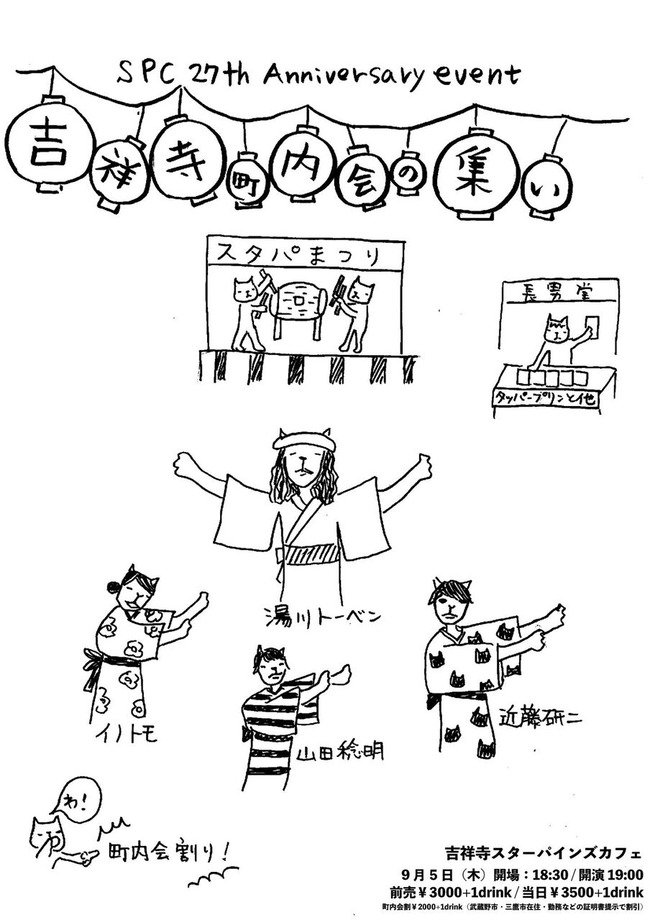 SPC 27th Anniversary event
吉祥寺町内会の集い
スタパまつり
長男堂
タッパープリンと他
湯川トーベン
イノトモ
山田稔明
近藤研二
わ!
町内会割り!
吉祥寺スターパインズカフェ
9月5日(木)開場:18:30/開演19:00
前売¥3000+1drink/当日¥3500+1drink
町内会割¥2000+1drink(武蔵野市・三鷹市在住・勤務などの証明書提示で割引)